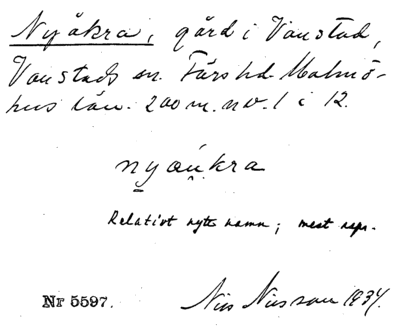 Nyåkra, gård i Vanstad,
Vanstads sn. Färs hd. Malmö-
hus län. 200 m. nv. 1 i 12.
nyoukra
Relativt nytt namn; mest raps.
Nr 5597.
Nils Nilsson 1934.